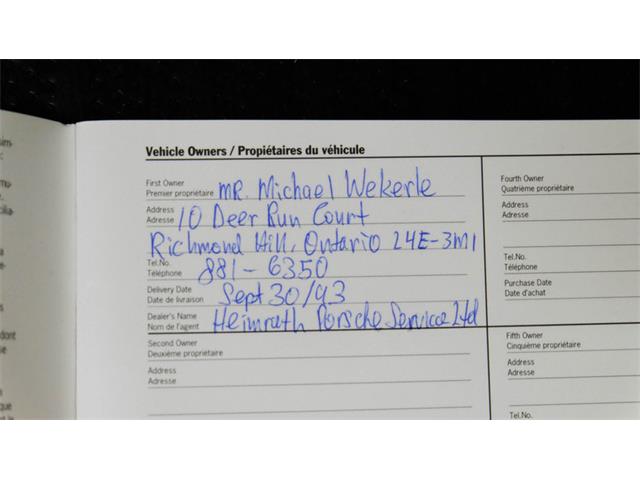 Vehicle Owners / Propiétaires du véhicule
First Owner
Premier propriétaire MR. Michael Wekerle
Address
Adresse 10 Deer Run Court
Richmond Hill, Ontario L4E-3M1
Tel.No.
Téléphone 881-6350
Delivery Date
Date de livraison Sept 30/93
Dealer's Name
Nom de l'agent Heimrath Porsche Service Ltd
Second Owner
Deuxième propriétaire
Address
Adresse
Fourth Owner
Quatrième propriétaire
Address
Adresse
Tel.No.
Téléphone
Purchase Date
Date d'achat
Fifth Owner
Cinquième propriétaire
Address
Adresse
Tel.No.